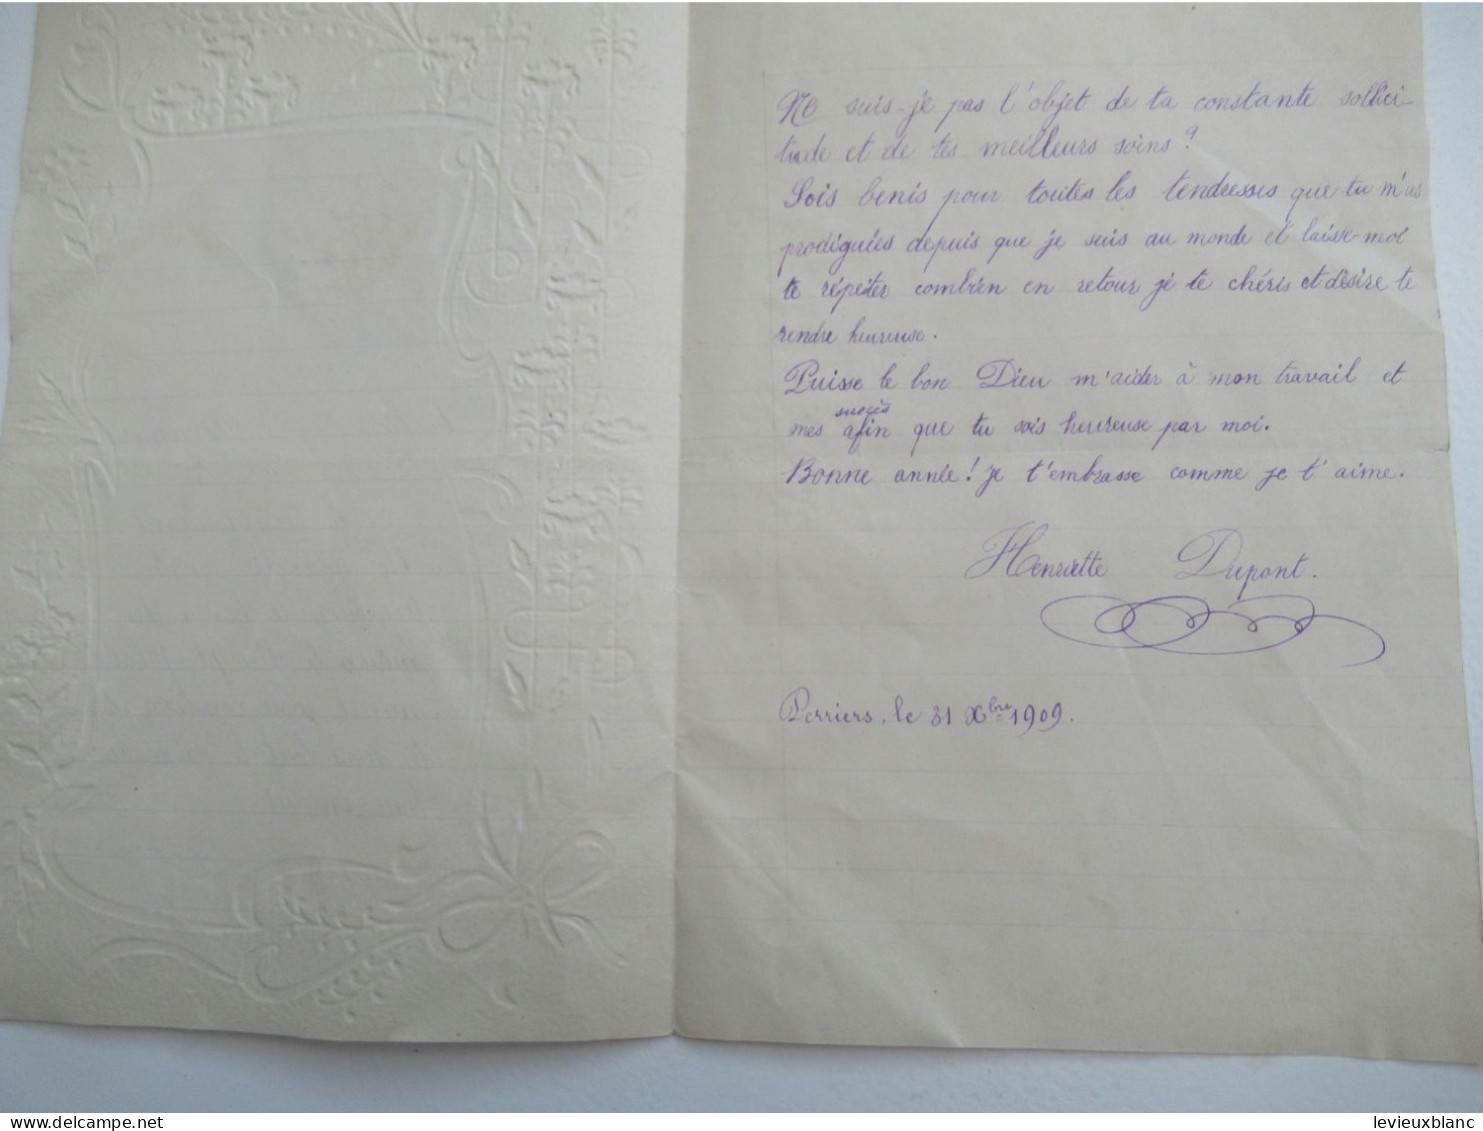 Ne suis-je pas l'objet de ta constante sollici-
tude et de tes meilleurs soins ?
Sois benis pour toutes les tendresses que tu m'as
prodiguées depuis que je suis au monde et laisse-moi
te répéter combien en retour je te chéris et désire te
rendre heureuse.
Puisse le bon Dieu m'aider à mon travail et
succès
mes afin que tu sois heureuse par moi.
Bonne année ! je t'embrasse comme je t'aime.
Henriette Dupont.
Perriers, le 31 Xbre 1909.
levieuxblanc